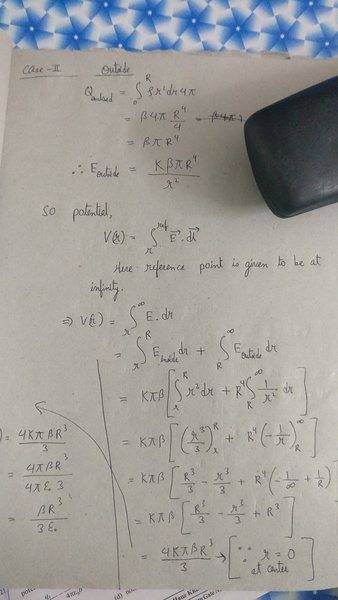 Case-II Outside
Q enclosed = ∫₀ᴿ ρr²dr4π
= β4π R⁴/4
= βπR⁴
∴ E outside = KβπR⁴/r²
SO potential,
V(r) = ∫ᵣ^ref E⃗.dl⃗
Here reference point is given to be at
infinity.
⇒ V(r) = ∫ᵣ^∞ E.dr
= ∫ᵣᴿ E inside dr + ∫_R^∞ E outside dr
= Kπβ [∫ᵣᴿ r²dr + R⁴∫_R^∞ 1/r² dr]
= Kπβ [(r³/3)ᵣᴿ + R⁴(-1/r)_R^∞]
= Kπβ [R³/3 - r³/3 + R⁴(-1/∞ + 1/R)]
= Kπβ [R³/3 - r³/3 + R³]
= 4KπβR³/3 → [∵ r = 0 at center]
= 4KπβR³/3
= 4πβR³/4πε₀3
= βR³/3ε₀